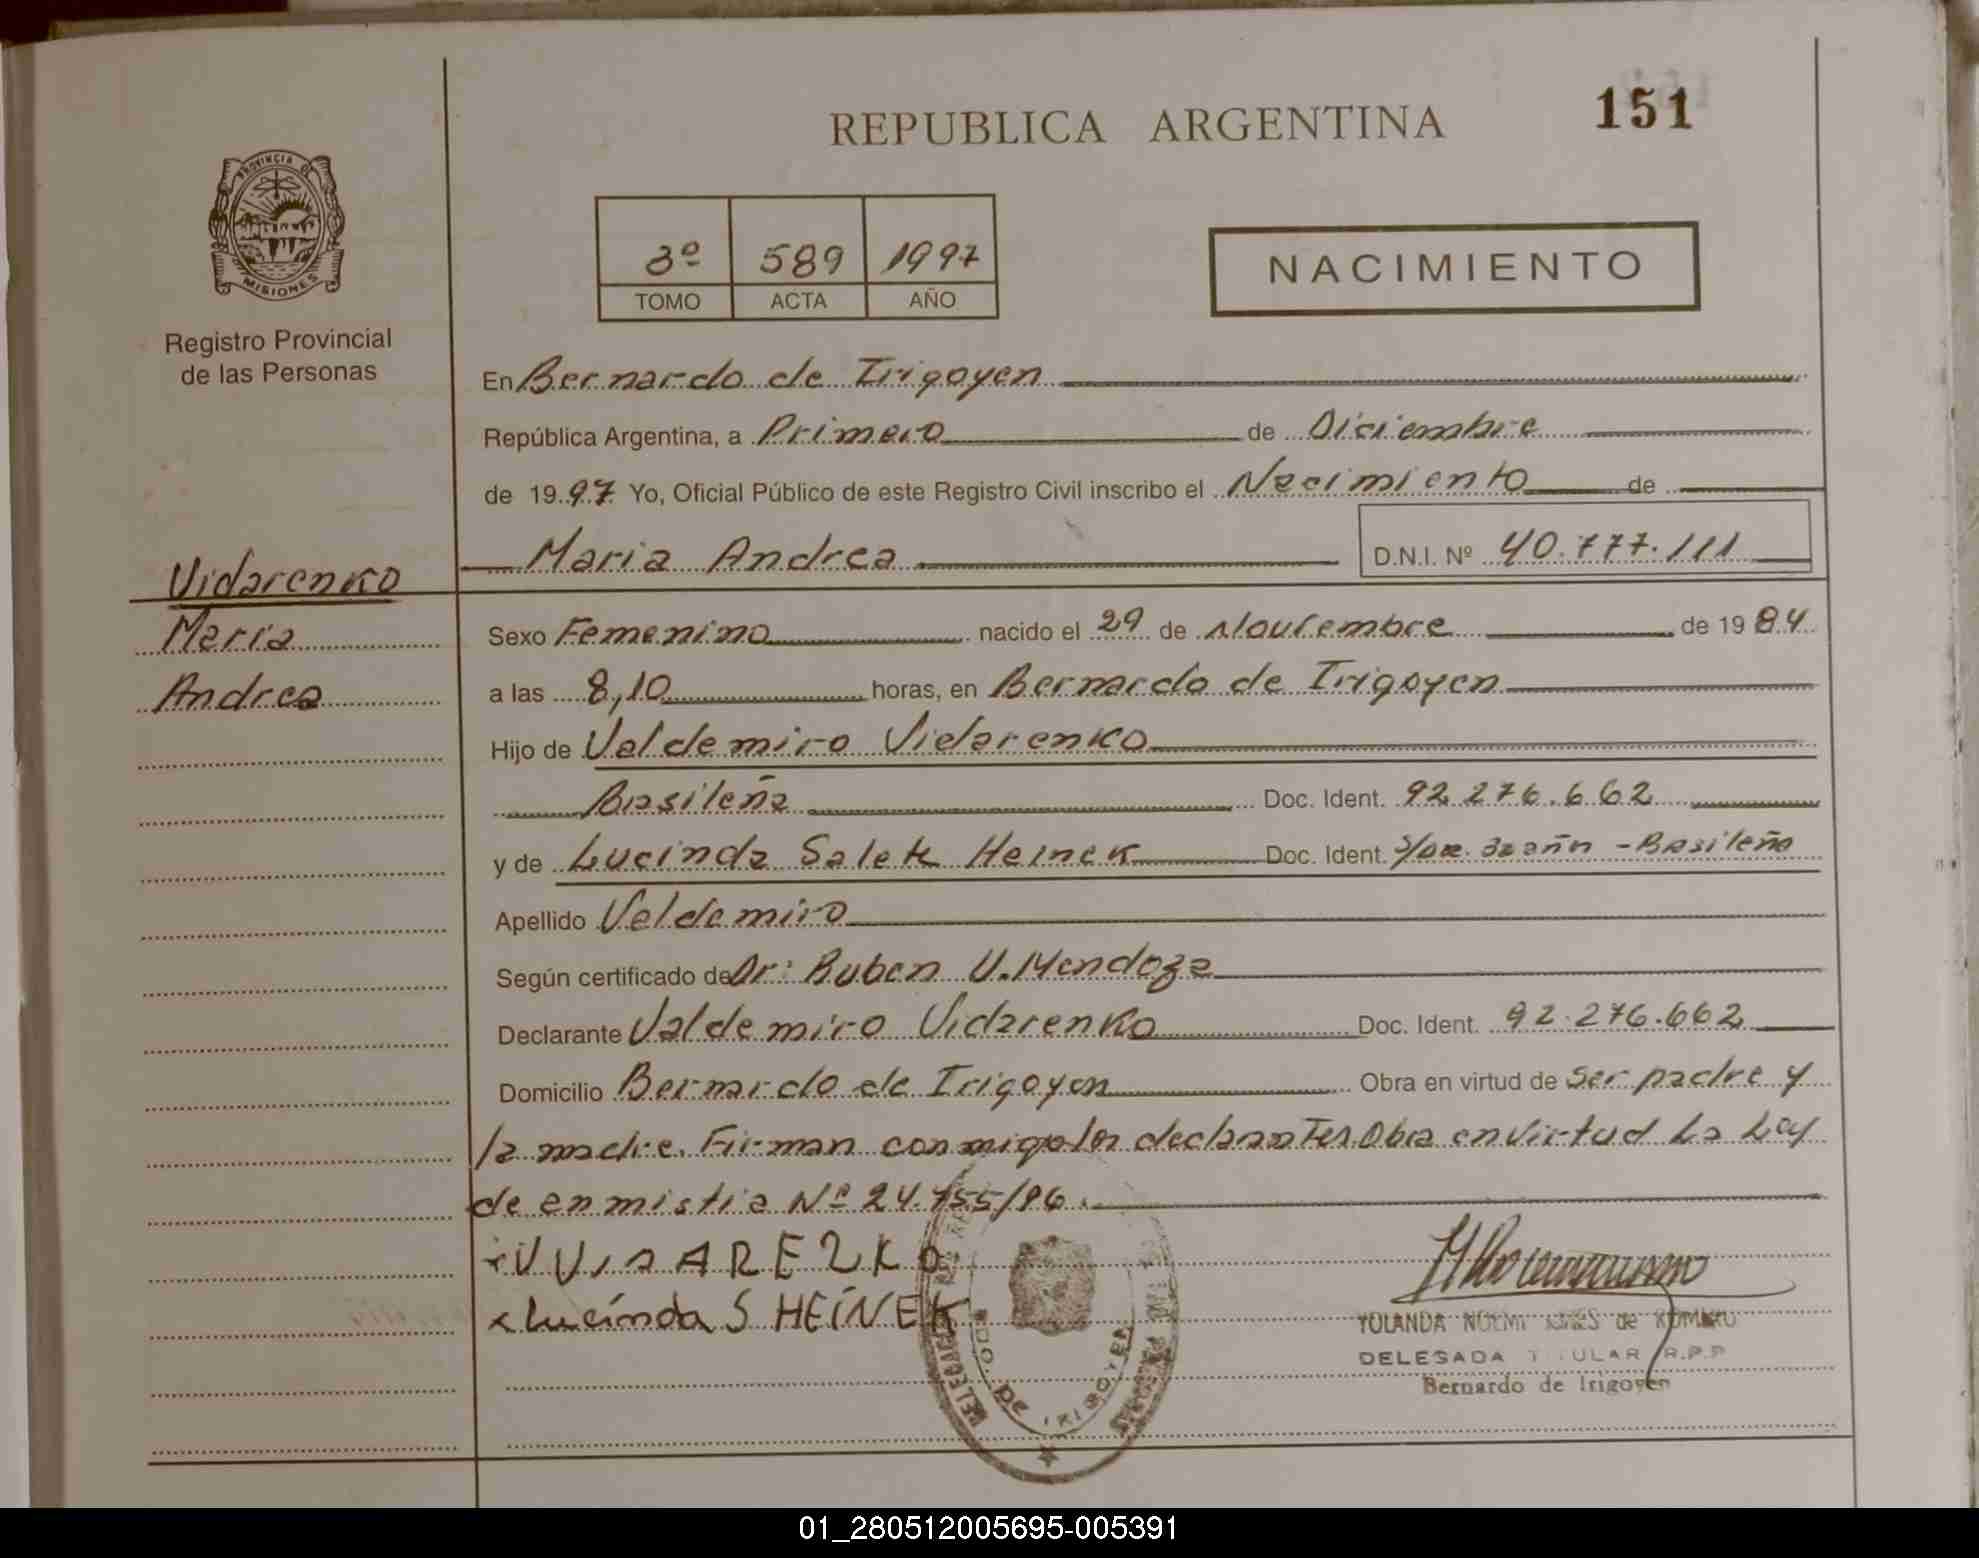 REPUBLICA ARGENTINA
151
PROVINCIA DE
MISIONES
Registro Provincial
de las Personas
3º 589 1997
TOMO ACTA AÑO
NACIMIENTO
En Bernardo de Irigoyen
República Argentina, a Primero de Diciembre
de 19 97 Yo, Oficial Público de este Registro Civil inscribo el Nacimiento de
Maria Andrea D.N.I. Nº 40.777.111
Vidarenko
Maria
Andrea
Sexo Femenino nacido el 29 de Noviembre de 19 84
a las 8,10 horas, en Bernardo de Irigoyen
Hijo de Valdemiro Vidarenko
Brasileña Doc. Ident. 92.276.662
y de Lucinda Salete Heinek Doc. Ident. - Brasileña
Apellido Valdemiro
Según certificado de Dr: Ruben V. Mendoza
Declarante Valdemiro Vidarenko Doc. Ident. 92.276.662
Domicilio Bernardo de Irigoyen Obra en virtud de Ser padre y
la madre. Firman conmigo los declarantes Obra en virtud La Ley
de enmistia Nº 24.755/96.
Lucinda S HEINEK
DE IRIGOYEN
YOLANDA NOEMI de ROMERO
DELEGADA TITULAR R.P.P
Bernardo de Irigoyen
01_280512005695-005391